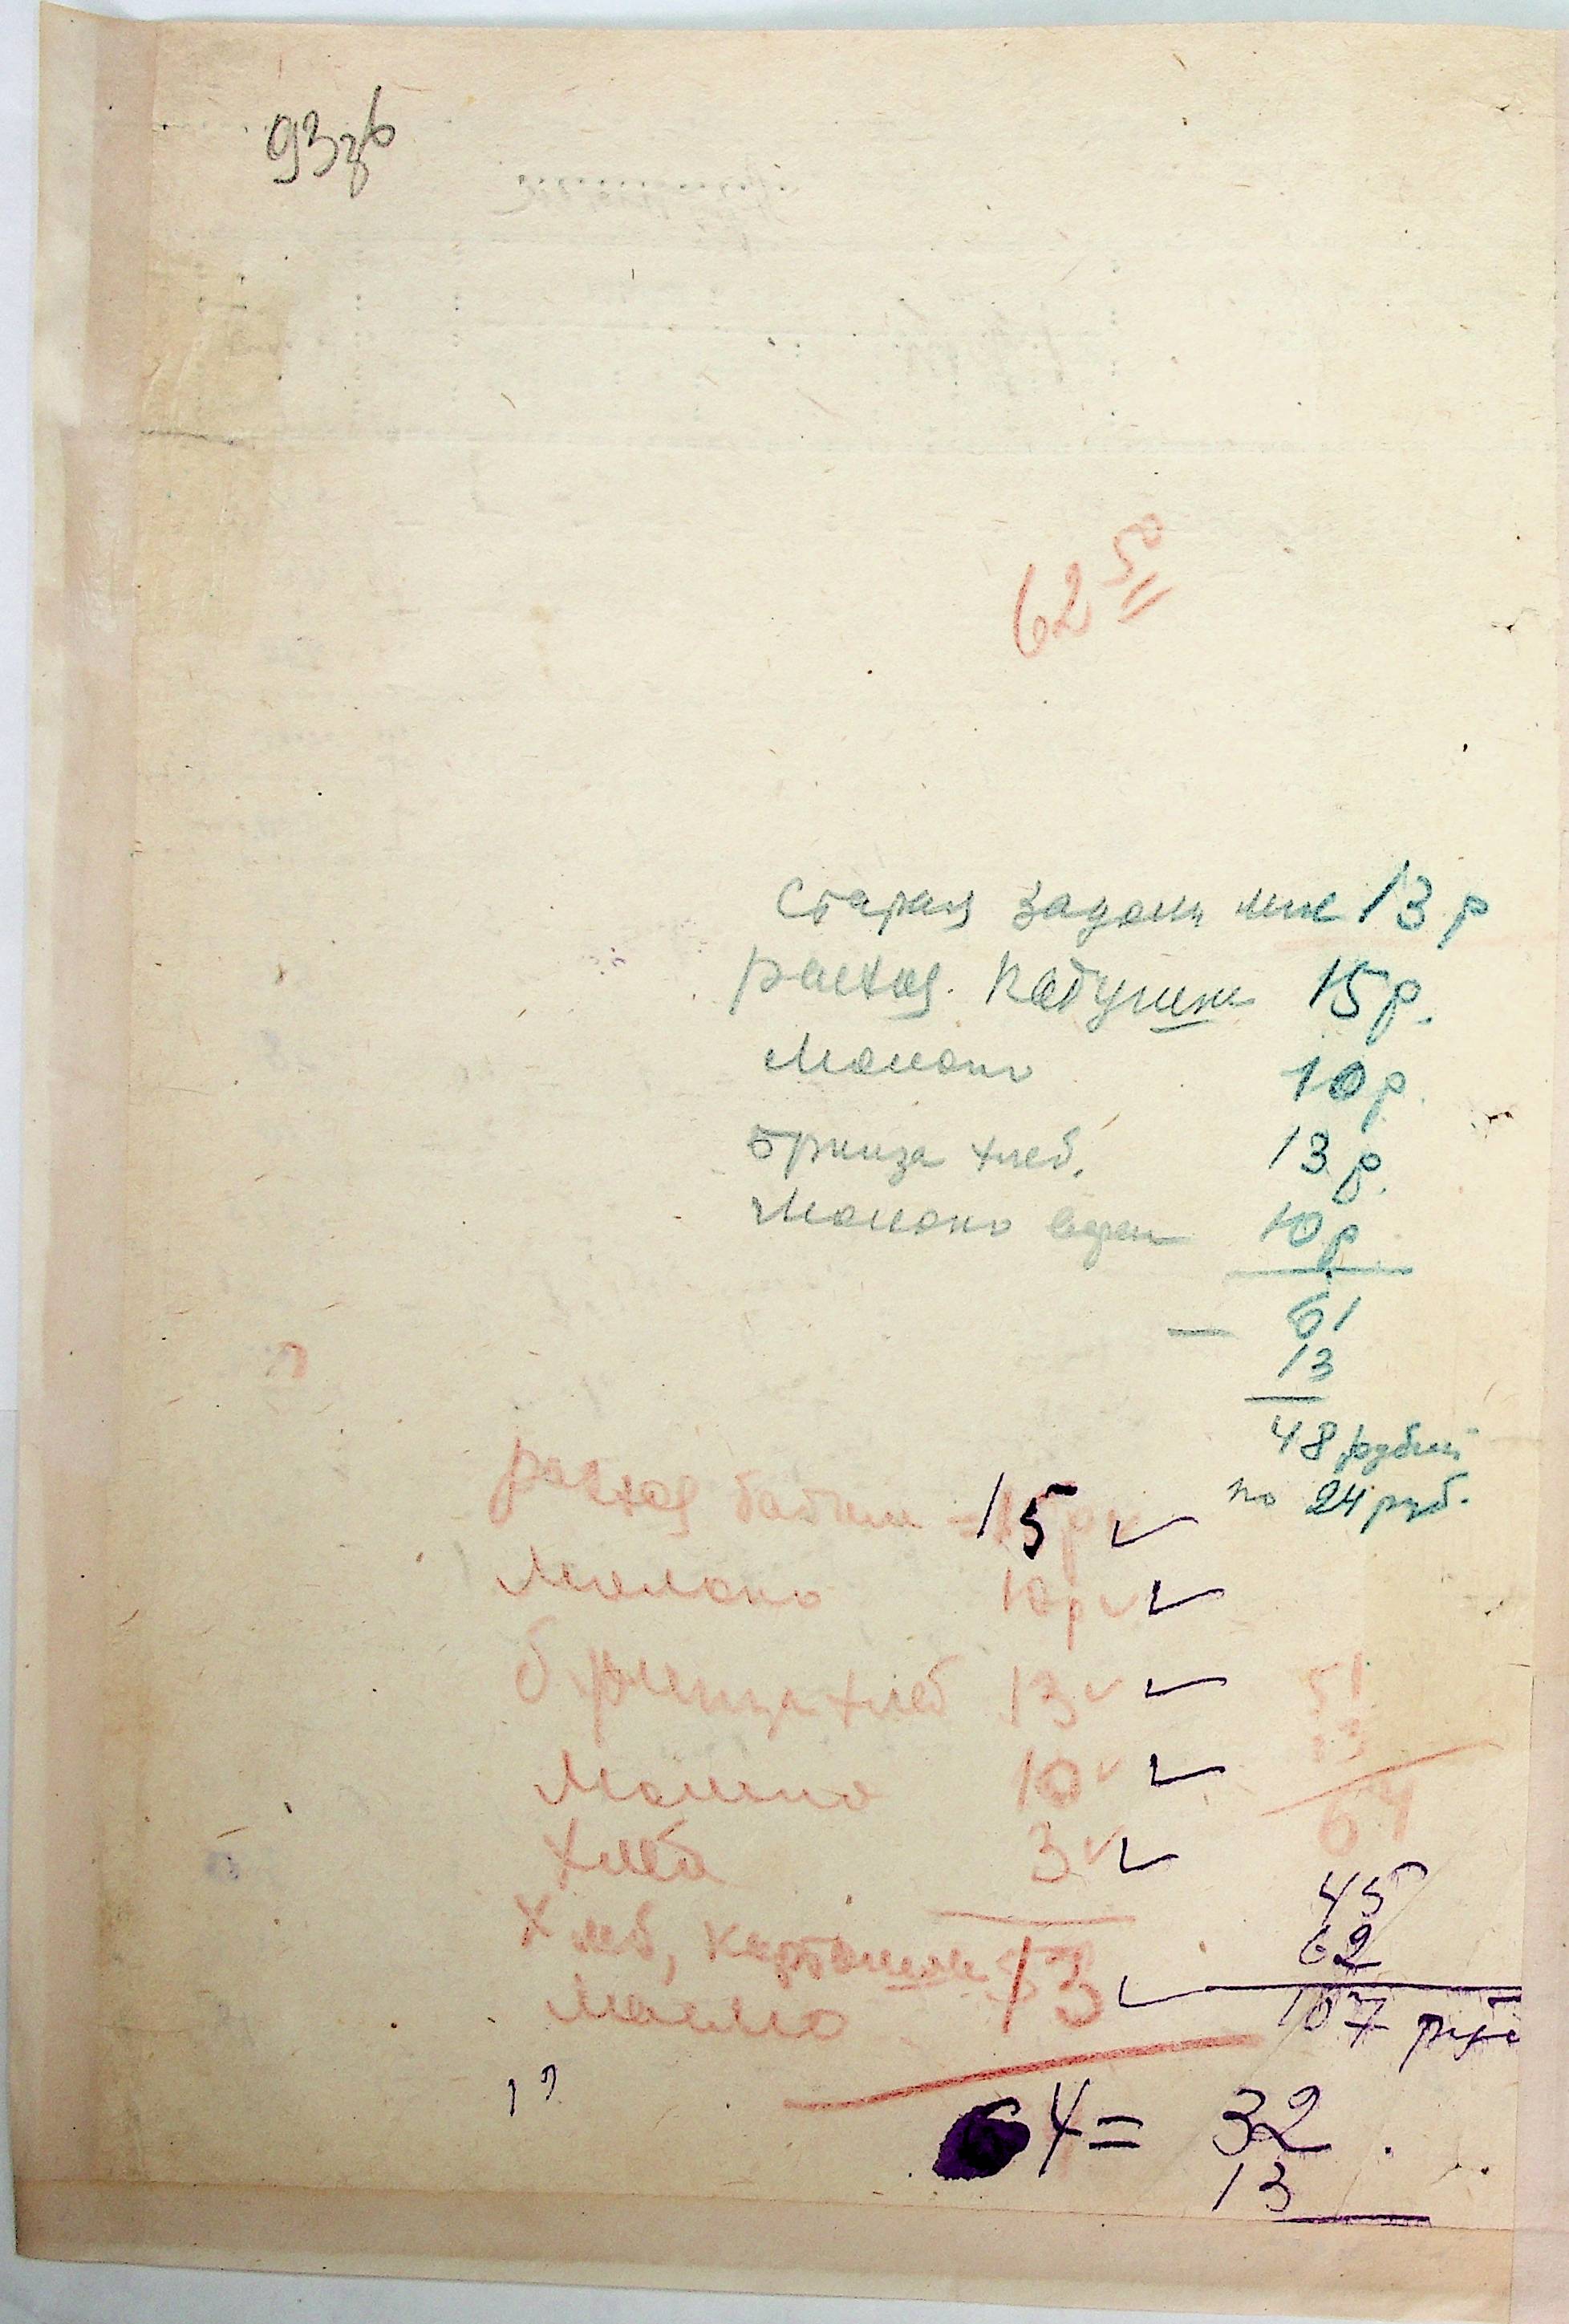 93зб
62 50
Старая задолж мне 13 р
расход. Катушки 15 р.
Молоко 10 р.
Брынза хлеб. 13 р.
Молоко 10 р
— 61
13
48 рублей
по 24 руб.
расход 15 ✓
Молоко 10 р ✓ ✓
брынза хлеб 13 ✓ ✓
51
13
64
Молоко 10 ✓ ✓
хлеб 3 ✓ ✓
45
62
107 руб
Хлеб, картошка 13 ✓
Масло
64 = 32
13